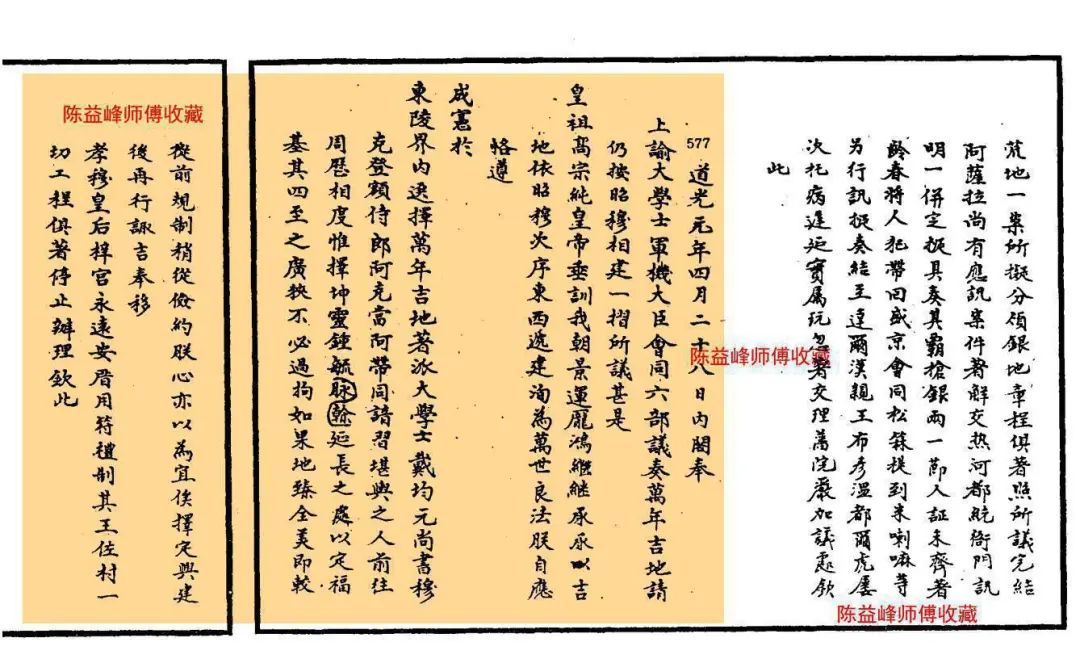 荒地一案所擬分領銀地章程俱著照所議完結
阿薩拉尚有應訊案件著解交热河都統衙門訊
明一併定擬具奏其霸搶銀兩一節人証未齊著
齡春将人犯帶回盛京會同松箖提到来喇嘛等
另行訊擬奏結至達爾漢親王布彦溫都爾虎屡
次托病遲延實属玩忽著交理藩院嚴加議處欽
此
577
道光元年四月二十八日內閣奉
上諭大學士軍機大臣會同六部議奏萬年吉地請
仍按昭穆相建一摺所議甚是
皇祖高宗純皇帝垂訓我朝景運龐鴻繼繼承承以吉
地依昭穆次序東西遞建洵為萬世良法朕自應
恪遵
成憲於
東陵界內選擇萬年吉地著派大學士戴均元尚書穆
克登額侍郎阿克當阿帶同諳習堪輿之人前往
周歷相度惟擇坤靈鍾毓脉餘延長之處以定福
基其四至之廣狹不必過拘如果地臻全美即較
從前規制稍從儉約朕心亦以為宜俟擇定興建
後再行諏吉奉移
孝穆皇后梓宮永遠安厝用符禮制其王佐村一
切工程俱著停止辦理欽此
陈益峰师傅收藏
陈益峰师傅收藏
陈益峰师傅收藏